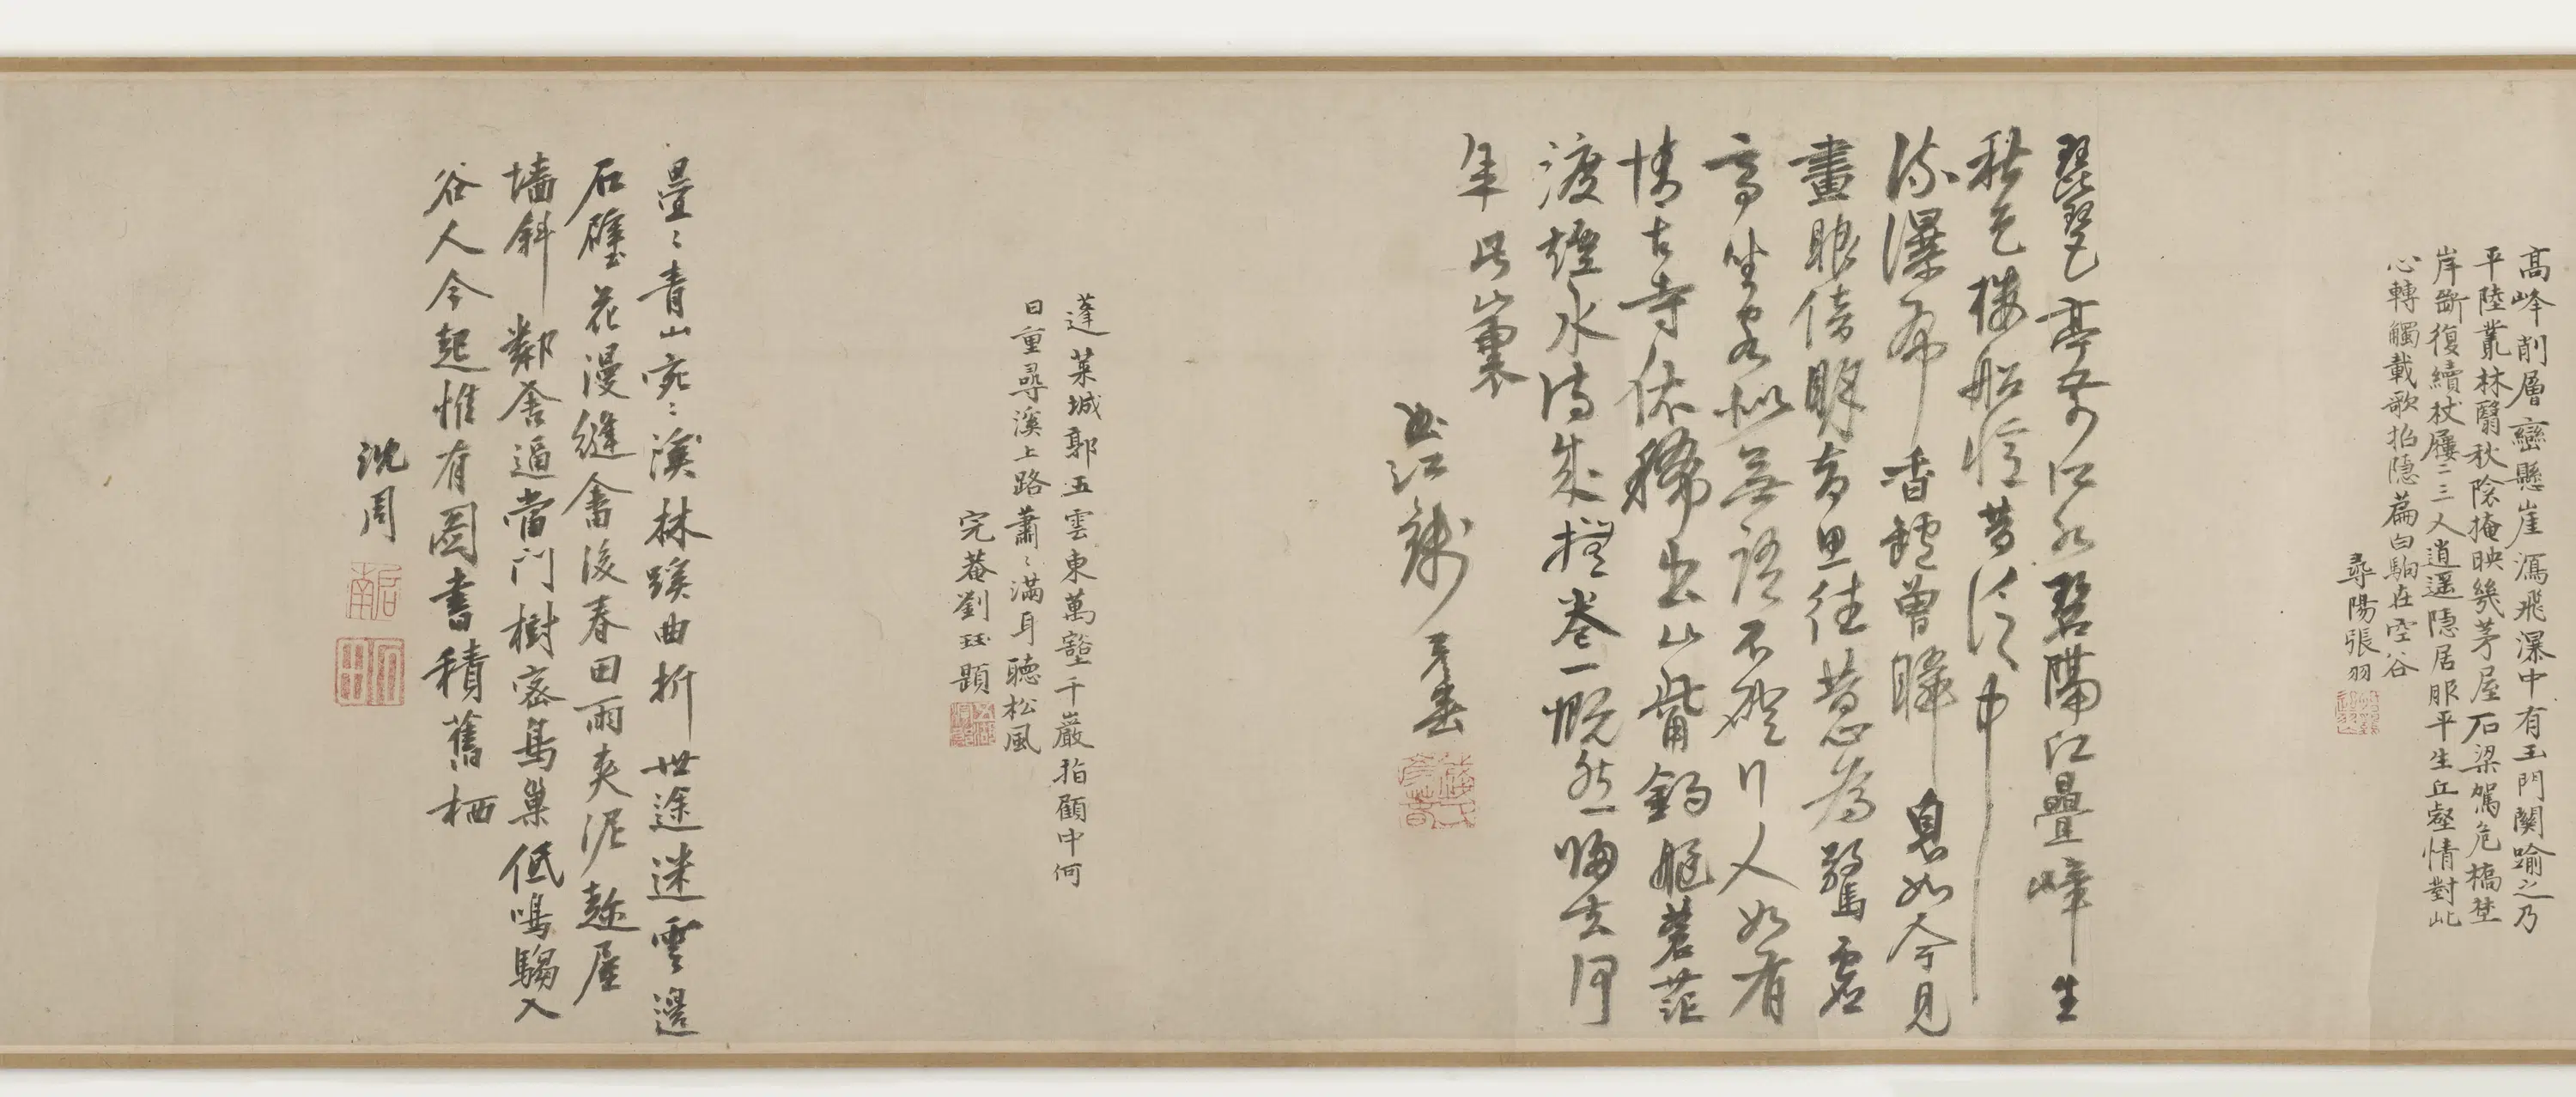 高峰削層巒懸崖瀉飛瀑中有玉門關踰之乃
平陸叢林翳秋陰掩映幾茅屋石梁駕危橋埜
岸斷復續杖屨二三人逍遥隱居服平生丘壑情對此
心轉觸載歌招隱篇白駒在空谷
尋陽張羽
琵琶亭前江水碧隔江疊嶂生
秋色樓船憶昔泛中
流瀑布香鑪曾睇息如今見
畫眼倍明有思往昔為驚
高坐客似無語不礙行人如有
情古寺依稀出山觜釣艇蒼茫
渡煙水詩成掩卷一慨然歸去何
年此山裏
曲江錢彥春
蓬萊城郭五雲東萬壑千巖指顧中何
日重尋溪上路蕭〻滿身聽松風
完菴劉珏題
疊〻青山宛〻溪林蹊曲折世途迷雲邊
石礕花漫縫畬後春田雨爽泥慭屋
墻斜鄰舍逼當門樹密鳥巢低鳴騶入
谷人今起惟有圖書積舊栖
沈周